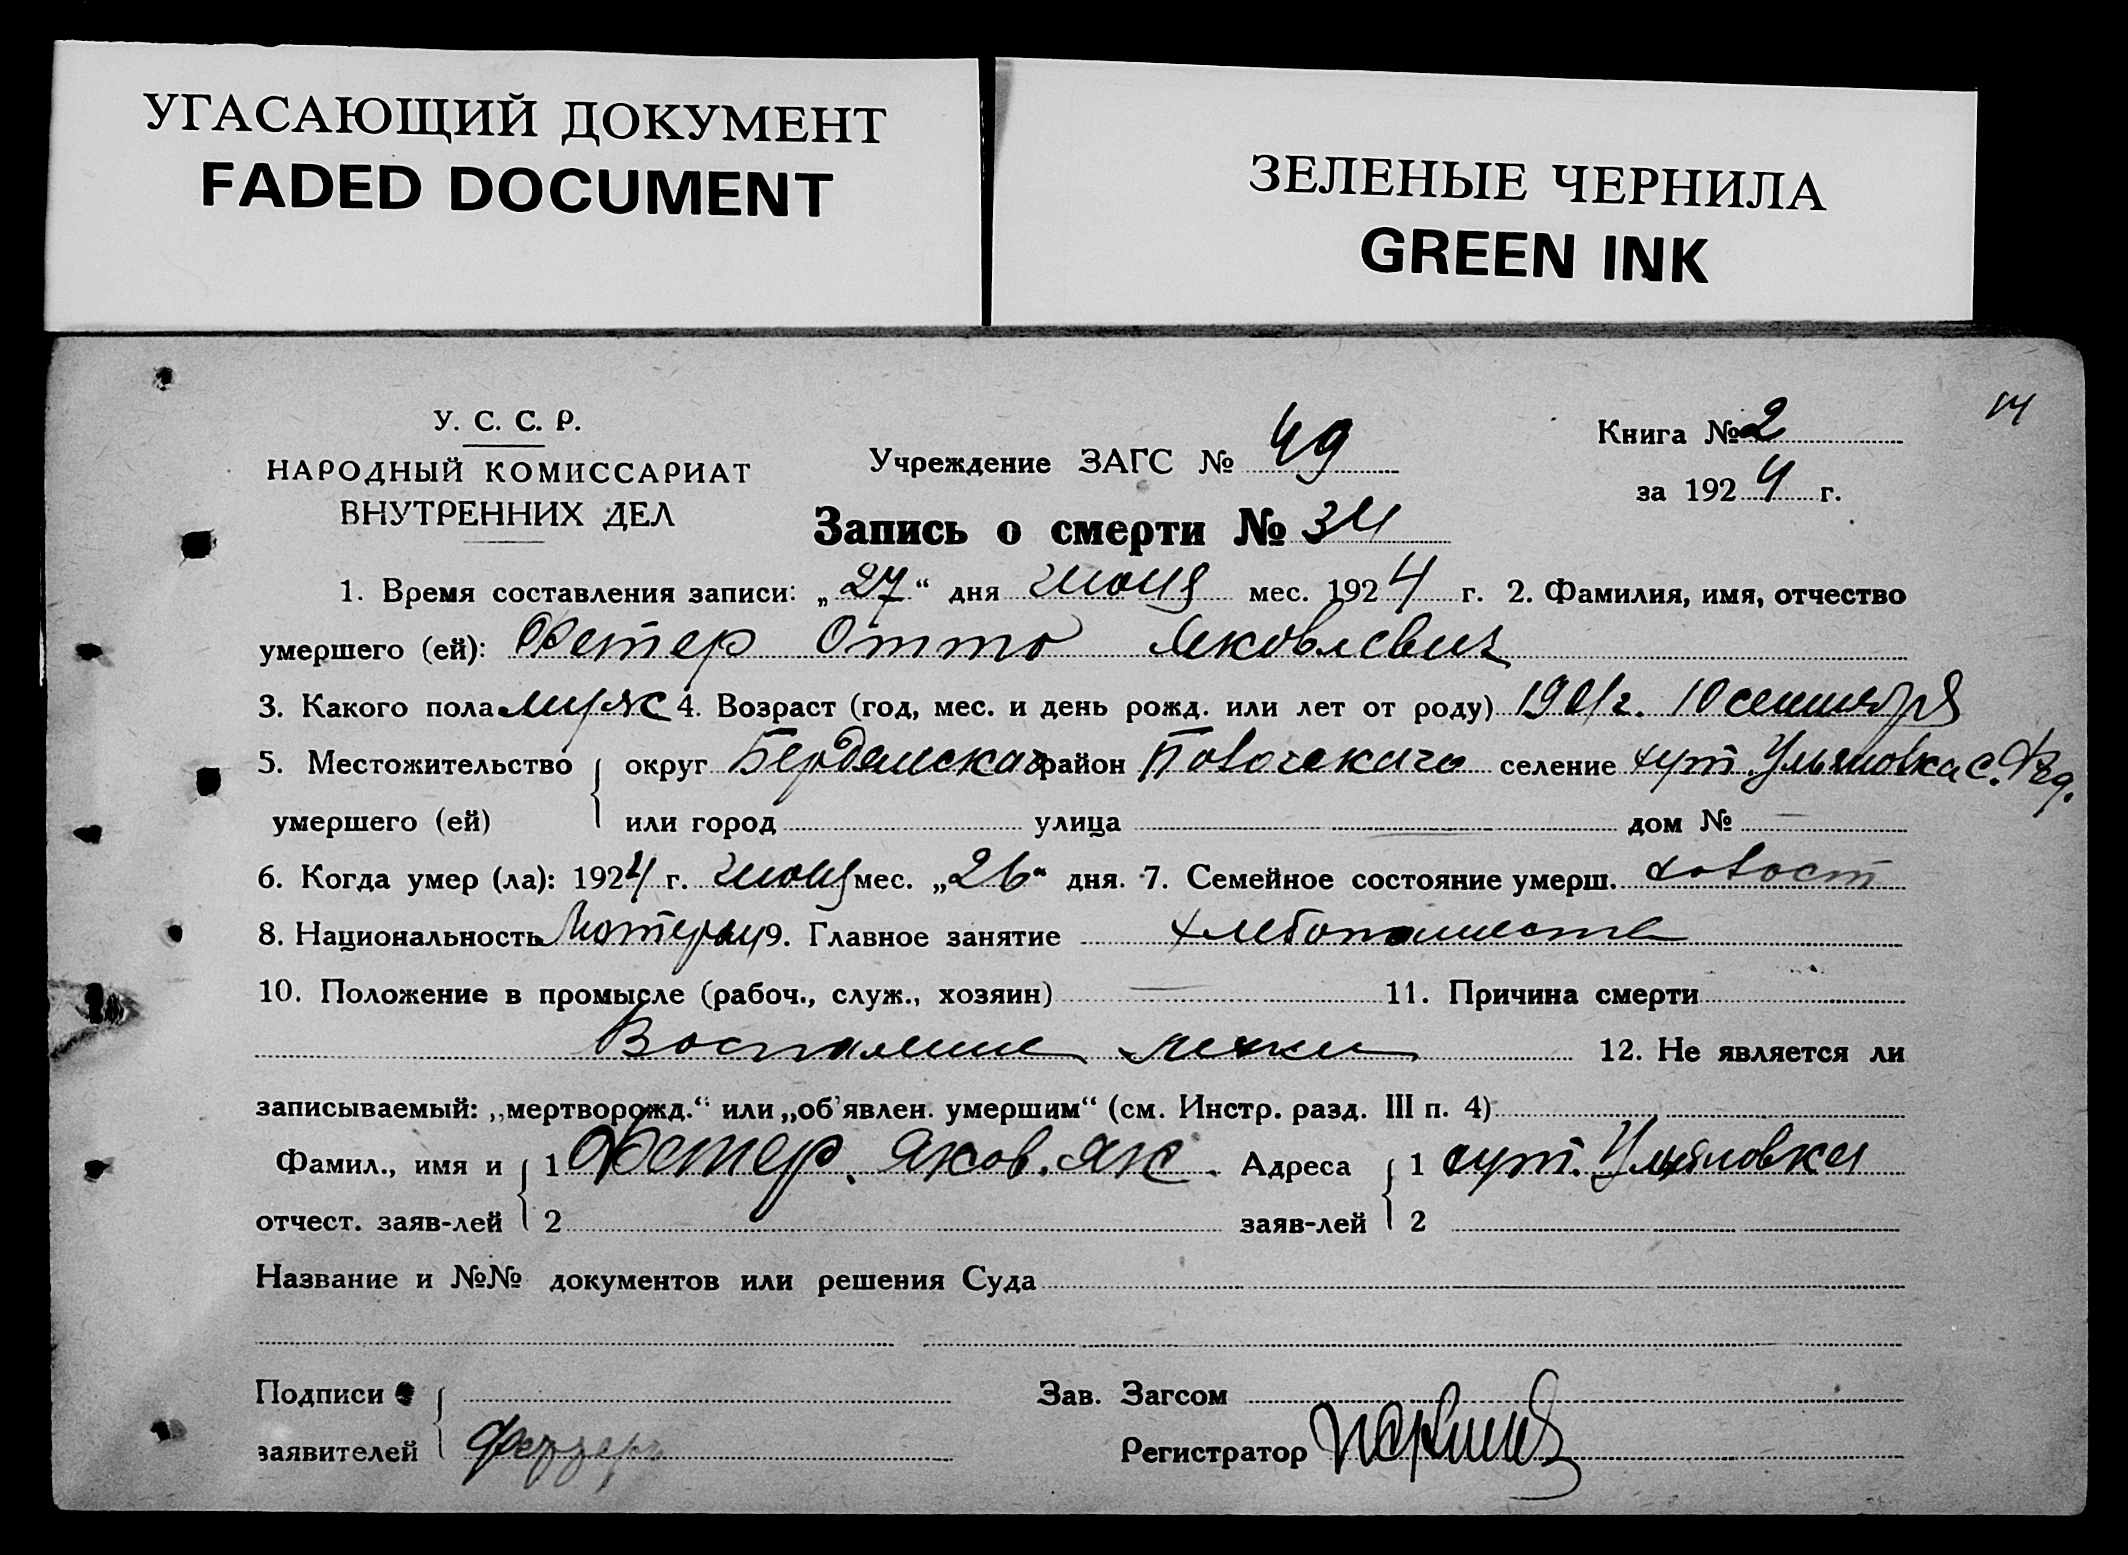 УГАСАЮЩИЙ ДОКУМЕНТ
FADED DOCUMENT
ЗЕЛЕНЫЕ ЧЕРНИЛА
GREEN INK
14
У. С. С. Р.
НАРОДНЫЙ КОМИССАРИАТ
ВНУТРЕННИХ ДЕЛ
Учреждение ЗАГС № 49
Книга № 2
за 1924 г.
Запись о смерти № 34
1. Время составления записи: „27“ дня июня мес. 1924 г. 2. Фамилия, имя, отчество
умершего (ей): Фетер Отто Яковлевич
3. Какого пола муж 4. Возраст (год, мес. и день рожд. или лет от роду) 1901 г. 10 сентября
5. Местожительство округ Бердянского район селение хут. Ульяновка с.
умершего (ей) или город улица дом №
6. Когда умер (ла): 1924 г. июня мес. „26“ дня. 7. Семейное состояние умерш. холост
8. Национальность Лютеран 9. Главное занятие хлебопашеств
10. Положение в промысле (рабоч., служ., хозяин) — 11. Причина смерти
Воспаление 12. Не является ли
записываемый: „мертворожд.“ или „об'явлен. умершим“ (см. Инстр. разд. III п. 4)
Фамил., имя и 1 Фетер. Яков. Як. Адреса 1 хут. Ульяновка
отчест. заяв-лей 2 заяв-лей 2
Название и №№ документов или решения Суда
Подписи Зав. Загсом
заявителей Регистратор